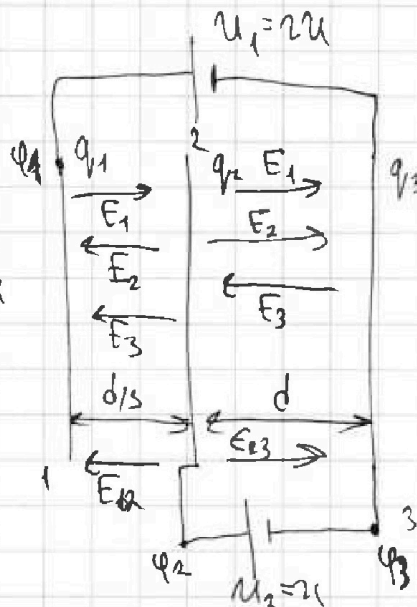 U₁=2U
2
φ₁ q₁ q₂ E₁ q₃
E₁ E₂
E₂ E₃
E₃
d/3 d
1 E₁₂ E₂₃ 3
φ₂ φ₃
U₂=U